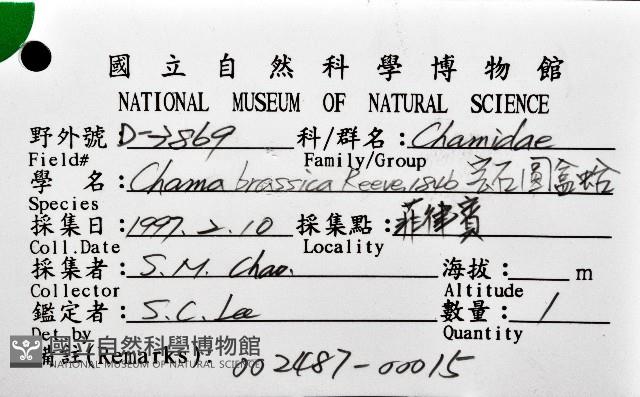 國立自然科學博物館
NATIONAL MUSEUM OF NATURAL SCIENCE
野外號 D-3869 科/群名：Chamidae
Field# Family/Group
學 名：Chama brassica Reeve, 1846 宝石圓盒蛤
Species
採集日：1997.2.10 採集點：菲律賓
Coll.Date Locality
採集者：S.M. Chao. 海拔： m
Collector Altitude
鑑定者：S.C. Lee 數量：1
Det.by Quantity
備註(Remarks). 002487-00015
國立自然科學博物館
NATIONAL MUSEUM OF NATURAL SCIENCE